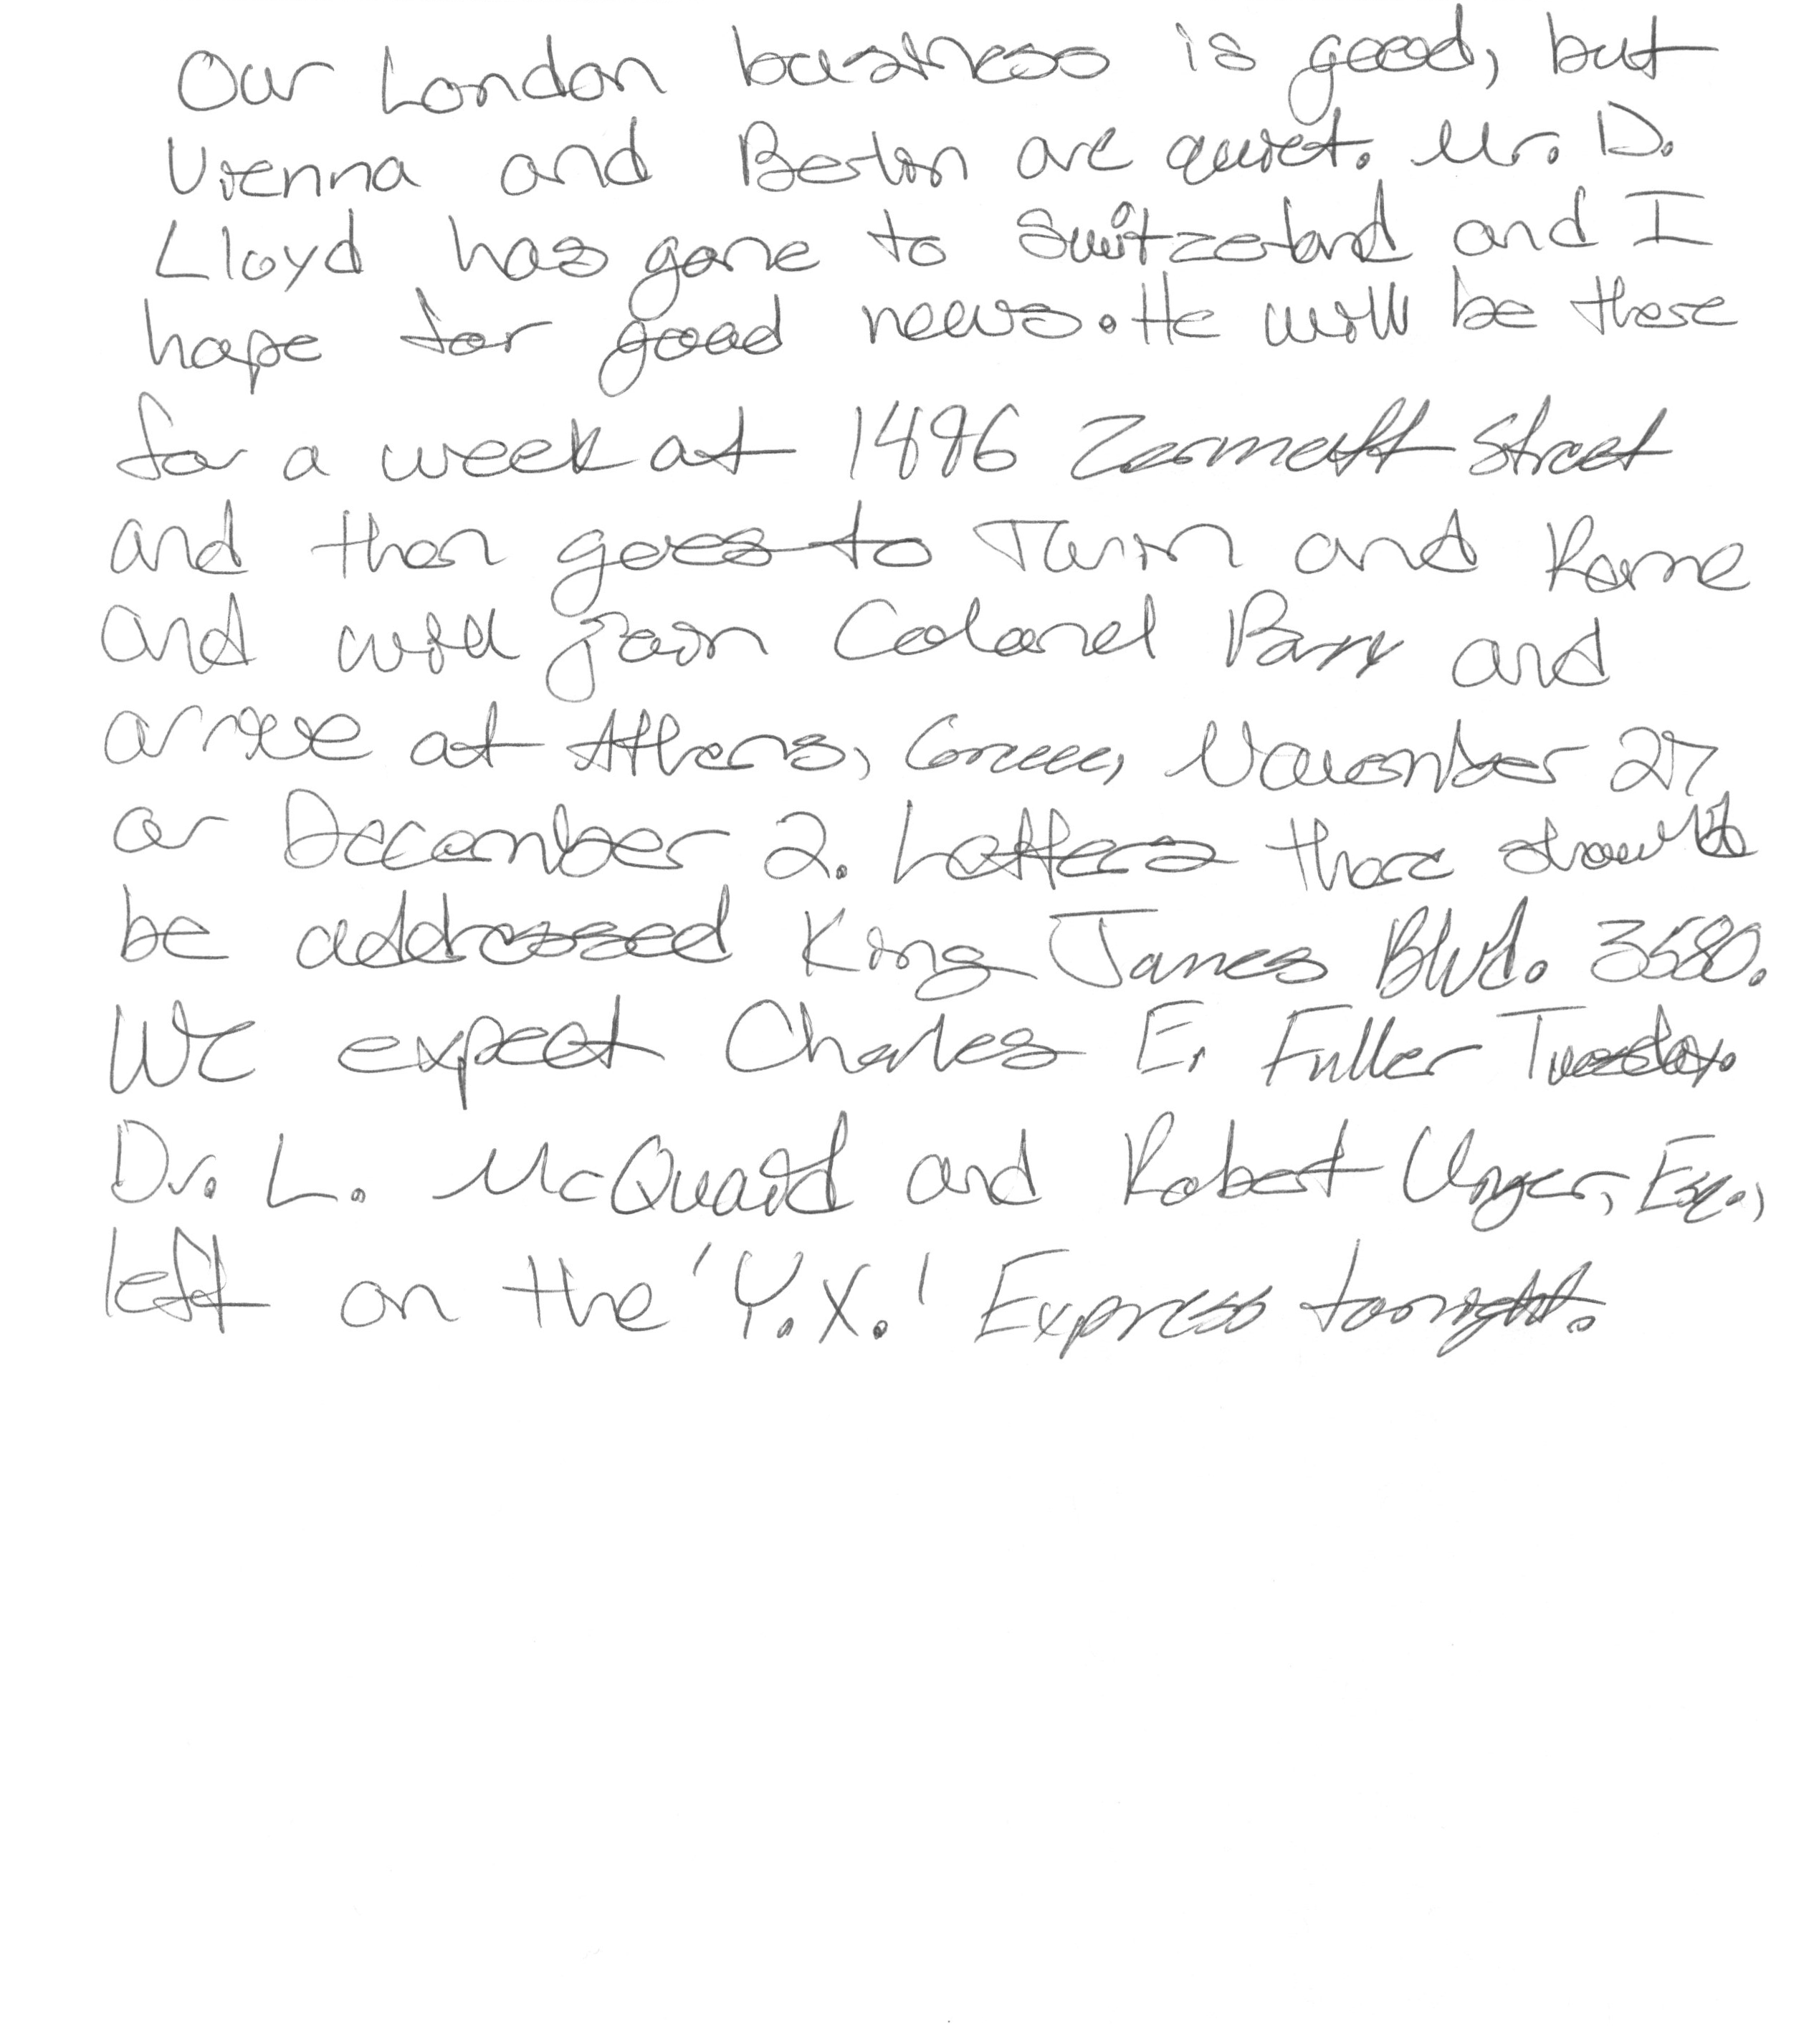 Our London business is good, but
Vienna and Berlin are quiet. Mr. D.
Lloyd has gone to Switzerland and I
hope for good news. He will be there
for a week at 1496 Zermatt Street
and then goes to Turin and Rome
and will join Colonel Parry and
arrive at Athens, Greece, November 27
or December 2. Letters there should
be addressed King James Blvd. 3580.
We expect Charles E. Fuller Tuesday.
Dr. L. McQuaid and Robert Unger, Esq.,
left on the 'Y.X.' Express tonight.